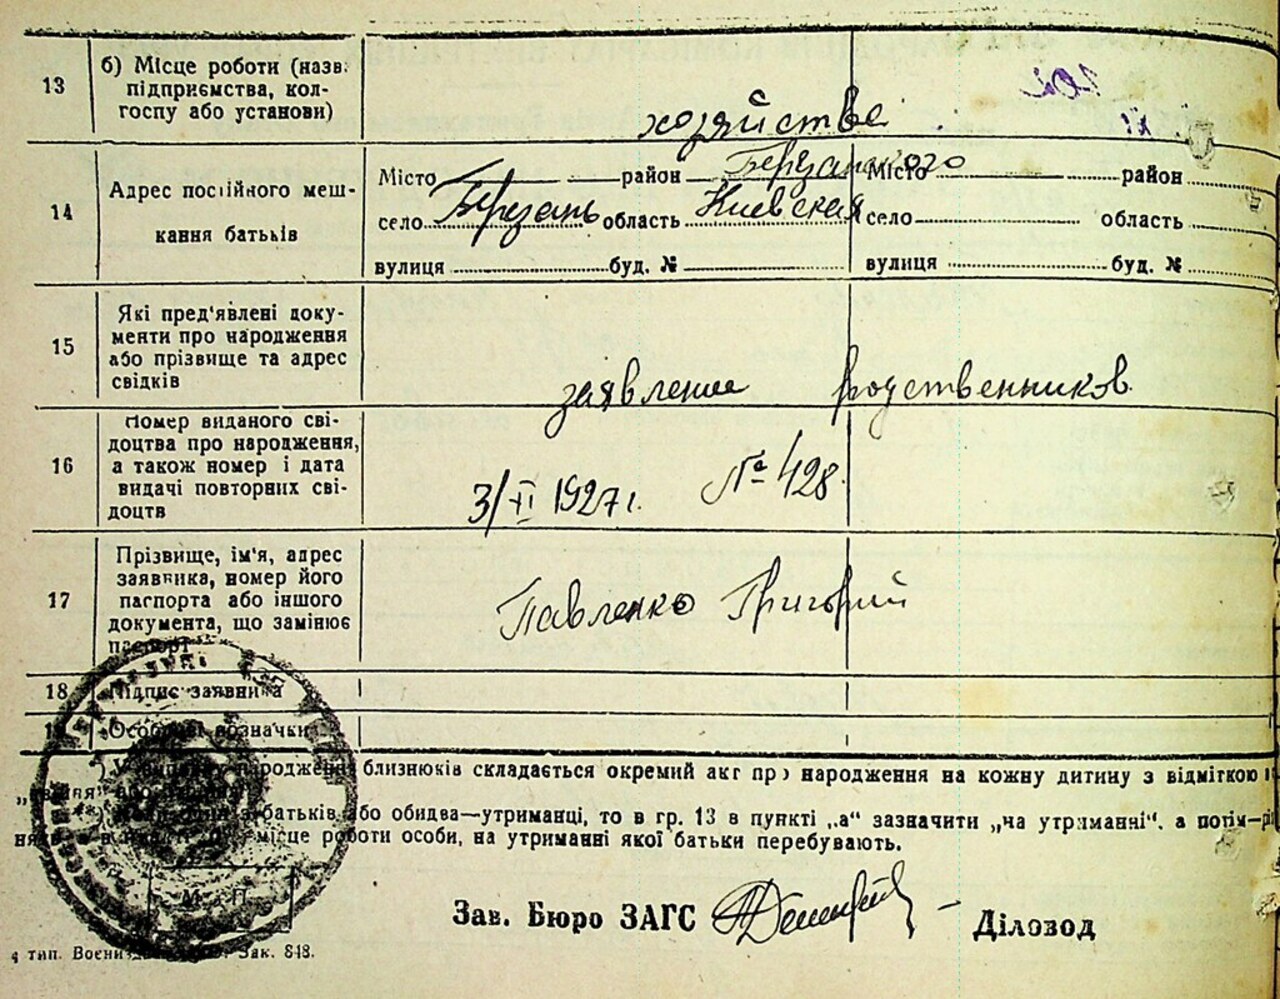 13
б) Місце роботи (назв.
підприємства, кол-
госпу або установи)
хозяйстве
14
Адрес постійного меш-
кання батьків
Місто район Березанского
село Березань область Киевская
вулиця буд. №
Місто район
село область
вулиця буд. №
15
Які пред'явлені доку-
менти про народження
або прізвище та адрес
свідків
заявление родственников.
16
Номер виданого сві-
доцтва про народження,
а також номер і дата
видачі повторних сві-
доцтв
3/VI 1927 г. № 428.
17
Прізвище, ім'я, адрес
заявника, номер його
паспорта або іншого
документа, що замінює
паспорт
Павленко Григорий
18
Підпис заявника
Особові відзначки
народження близнюків складається окремий акт про народження на кожну дитину з відміткою
батьків або обидва—утриманці, то в гр. 13 в пункті „а" зазначити „на утриманні", а потім—
місце роботи особи, на утриманні якої батьки перебувають.
М. П.
Зав. Бюро ЗАГС
Діловод
тип. Зак. 848.